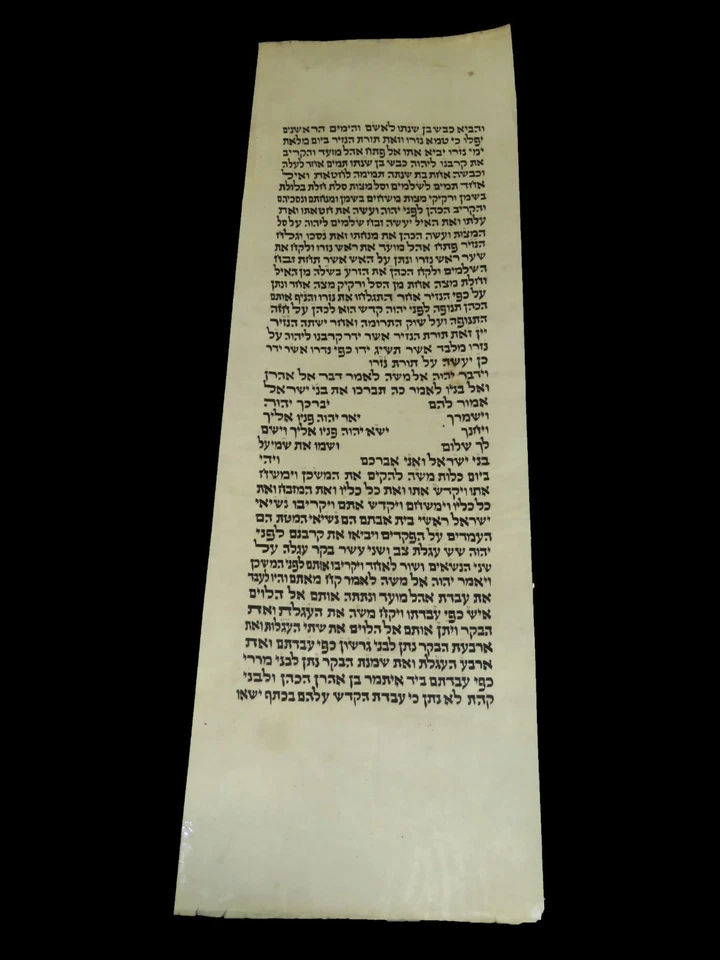 והביא כבש בן שנתו לאשם והימים הראשנים
יפלו כי טמא נזרו וזאת תורת הנזיר ביום מלאת
ימי נזרו יביא אתו אל פתח אהל מועד והקריב
את קרבנו ליהוה כבש בן שנתו תמים אחד לעלה
וכבשה אחת בת שנתה תמימה לחטאת ואיל
אחד תמים לשלמים וסל מצות סלת חלת בלולת
בשמן ורקיקי מצות משחים בשמן ומנחתם ונסכיהם
והקריב הכהן לפני יהוה ועשה את חטאתו ואת
עלתו ואת האיל יעשה זבח שלמים ליהוה על סל
המצות ועשה הכהן את מנחתו ואת נסכו וגלח
הנזיר פתח אהל מועד את ראש נזרו ולקח את
שער ראש נזרו ונתן על האש אשר תחת זבח
השלמים ולקח הכהן את הזרע בשלה מן האיל
וחלת מצה אחת מן הסל ורקיק מצה אחד ונתן
על כפי הנזיר אחר התגלחו את נזרו והניף אותם
הכהן תנופה לפני יהוה קדש הוא לכהן על חזה
התנופה ועל שוק התרומה ואחר ישתה הנזיר
יין זאת תורת הנזיר אשר ידר קרבנו ליהוה על
נזרו מלבד אשר תשיג ידו כפי נדרו אשר ידר
כן יעשה על תורת נזרו
וידבר יהוה אל משה לאמר דבר אל אהרן
ואל בניו לאמר כה תברכו את בני ישראל
אמור להם יברכך יהוה
וישמרך יאר יהוה פניו אליך
ויחנך ישא יהוה פניו אליך וישם
לך שלום ושמו את שמי על
בני ישראל ואני אברכם ויהי
ביום כלות משה להקים את המשכן וימשח
אתו ויקדש אתו ואת כל כליו ואת המזבח ואת
כל כליו וימשחם ויקדש אתם ויקריבו נשיאי
ישראל ראשי בית אבתם הם נשיאי המטת הם
העמדים על הפקדים ויביאו את קרבנם לפני
יהוה שש עגלת צב ושני עשר בקר עגלה על
שני הנשאים ושור לאחד ויקריבו אותם לפני המשכן
ויאמר יהוה אל משה לאמר קח מאתם והיו לעבד
את עבדת אהל מועד ונתתה אותם אל הלוים
איש כפי עבדתו ויקח משה את העגלת ואת
הבקר ויתן אותם אל הלוים את שתי העגלות ואת
ארבעת הבקר נתן לבני גרשון כפי עבדתם ואת
ארבע העגלת ואת שמנת הבקר נתן לבני מררי
כפי עבדתם ביד איתמר בן אהרן הכהן ולבני
קהת לא נתן כי עבדת הקדש עלהם בכתף ישאו